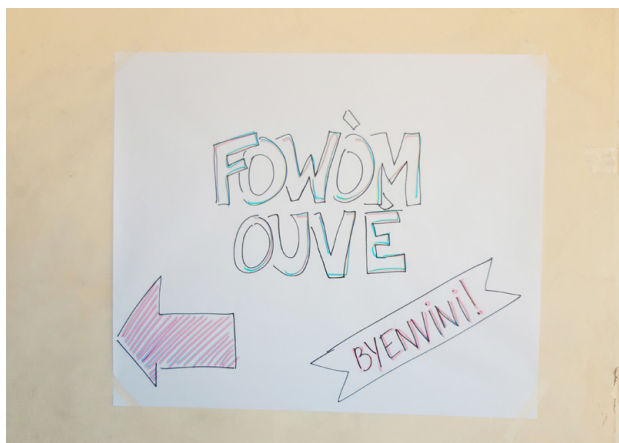 FOWÒM
OUVÈ
BYENVINI!